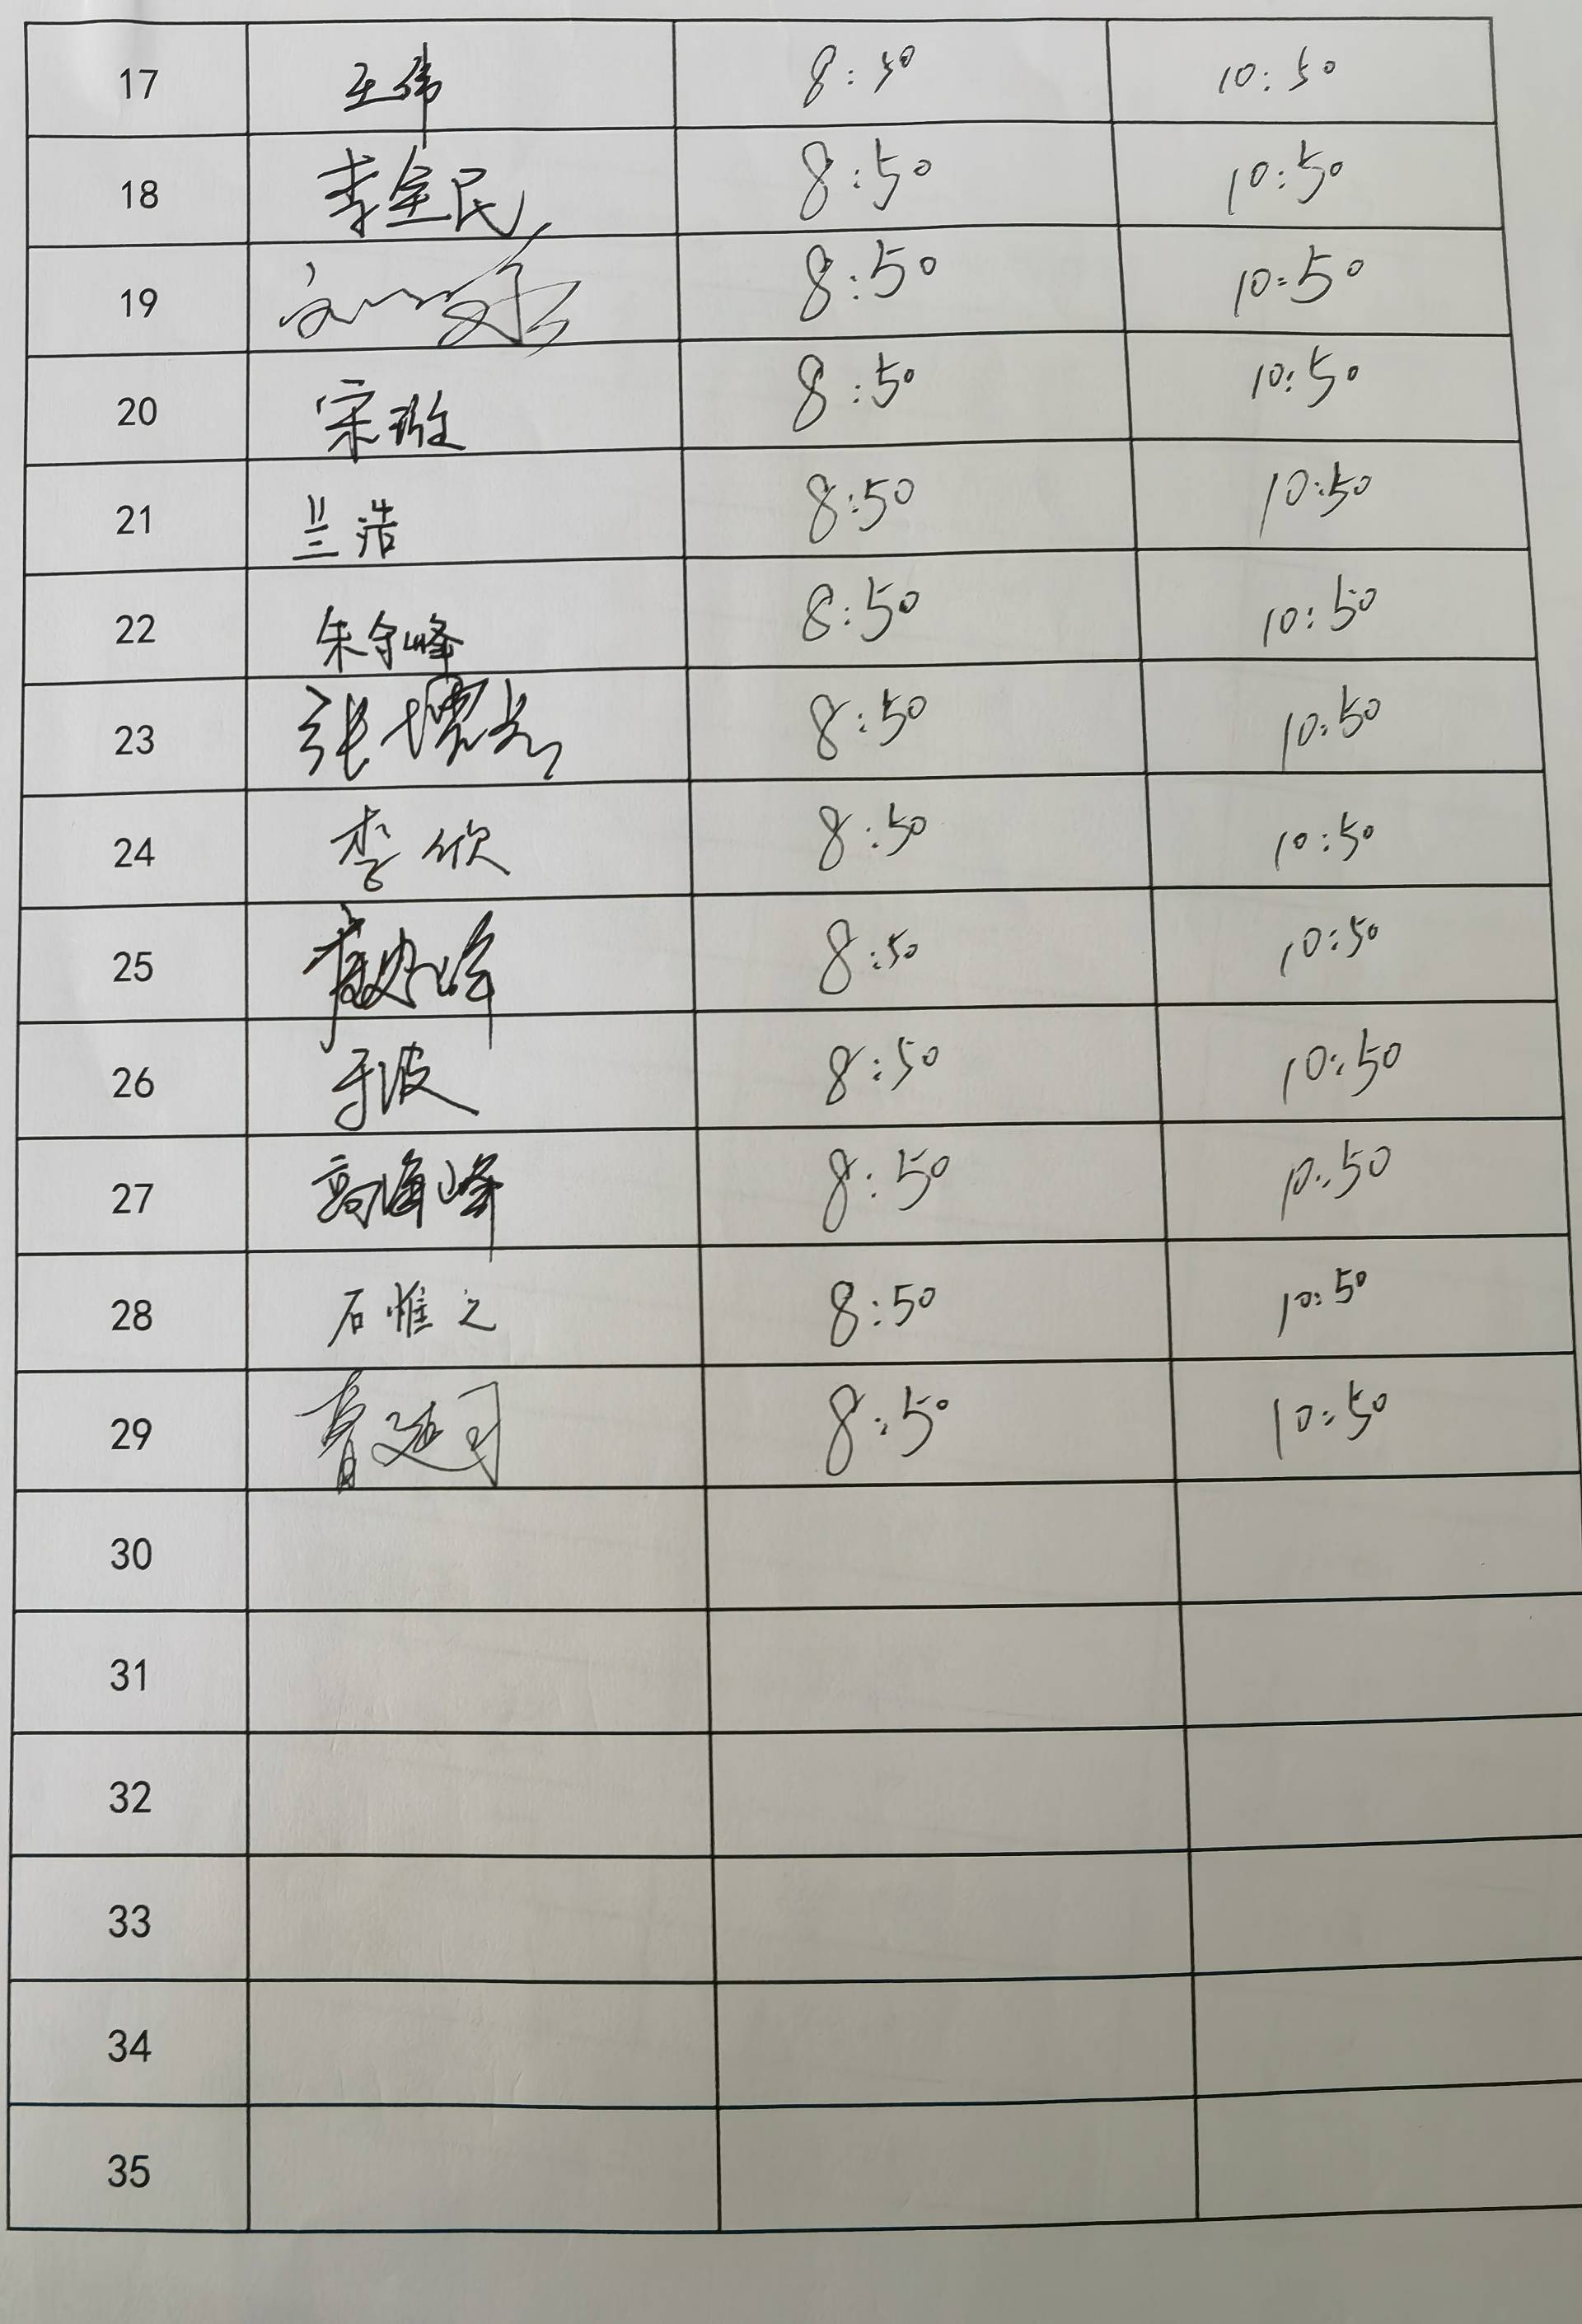 17 王伟 8:50 10:50
18 李金民 8:50 10:50
19 8:50 10:50
20 宋璇 8:50 10:50
21 兰浩 8:50 10:50
22 朱守峰 8:50 10:50
23 张 8:50 10:50
24 李欣 8:50 10:50
25 8:50 10:50
26 于波 8:50 10:50
27 高海峰 8:50 10:50
28 石惟之 8:50 10:50
29 8:50 10:50
30
31
32
33
34
35